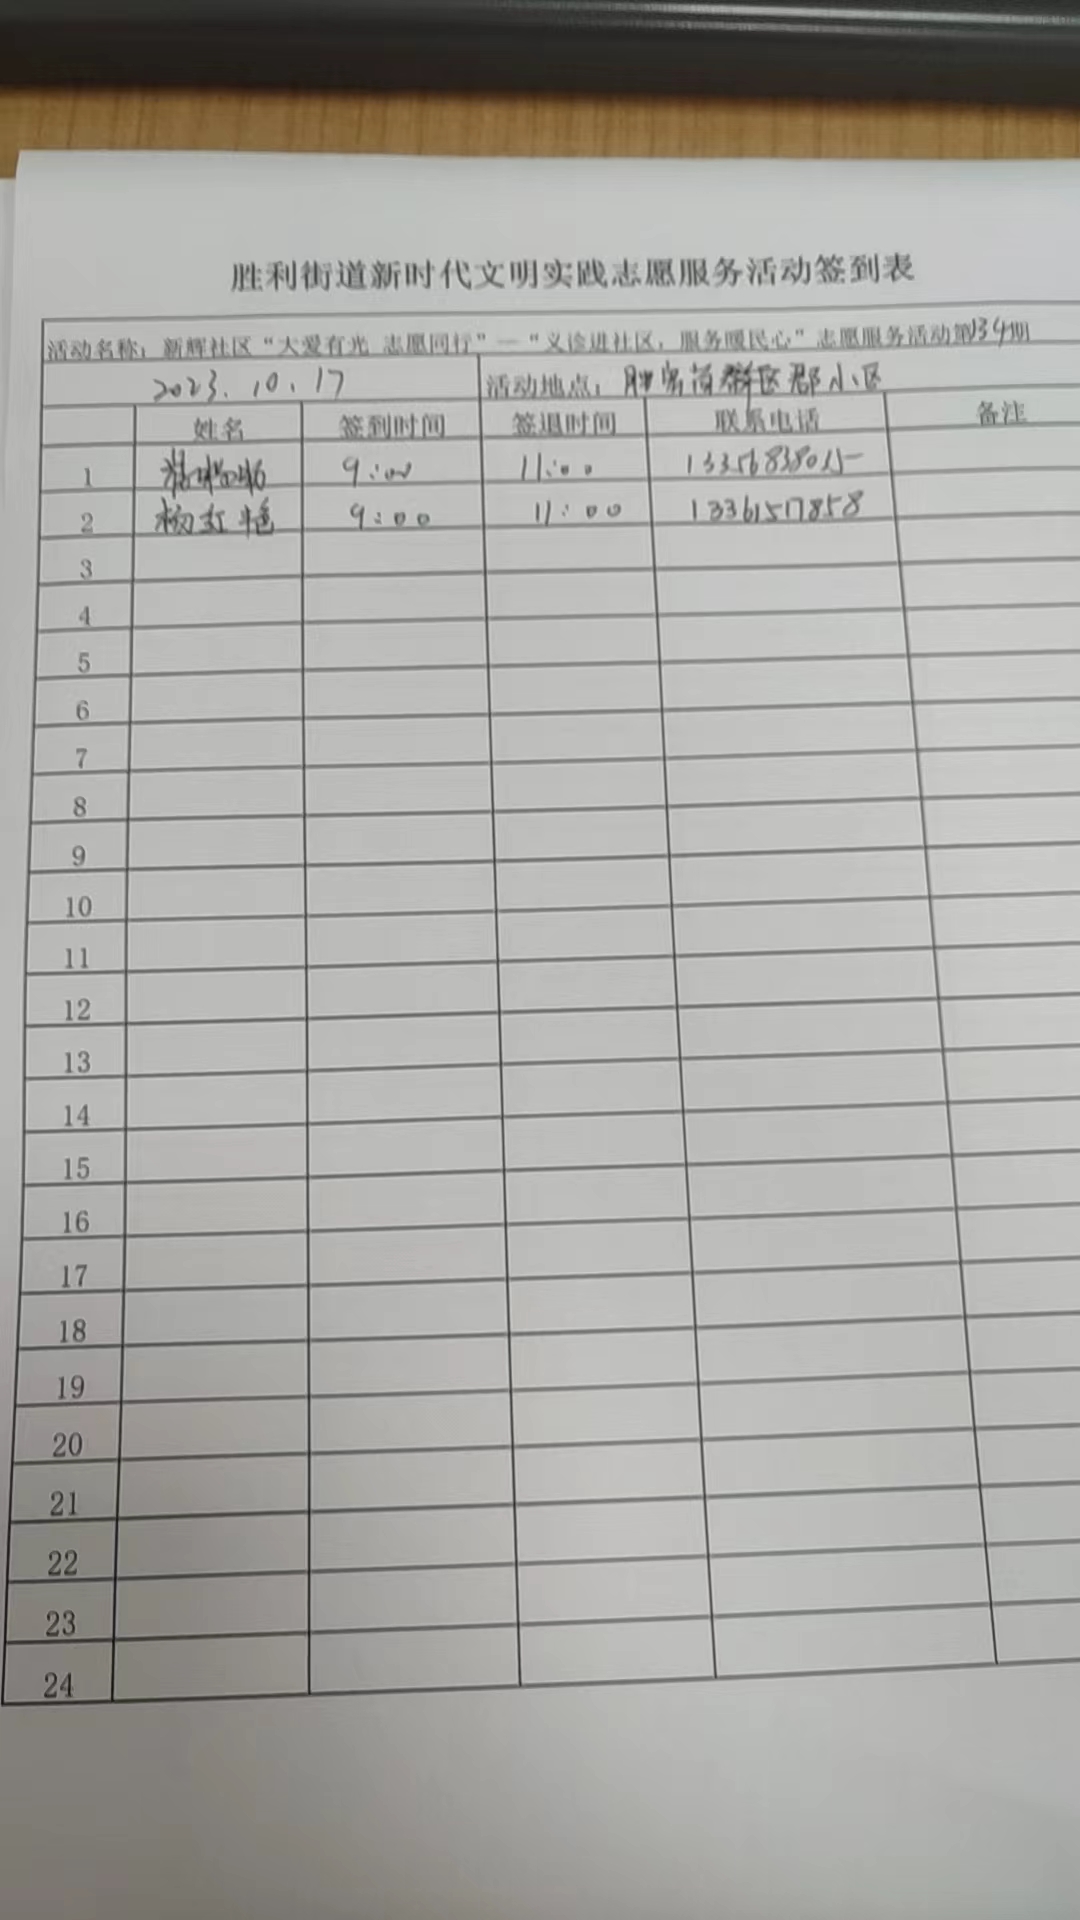 胜利街道新时代文明实践志愿服务活动签到表
活动名称：新辉社区“大爱有光 志愿同行”—“义诊进社区，服务暖民心”志愿服务活动第134期
2023.10.17 活动地点： 小区
姓名 签到时间 签退时间 联系电话 备注
1 9:00 11:00
2 杨红艳 9:00 11:00 13361517858
3
4
5
6
7
8
9
10
11
12
13
14
15
16
17
18
19
20
21
22
23
24